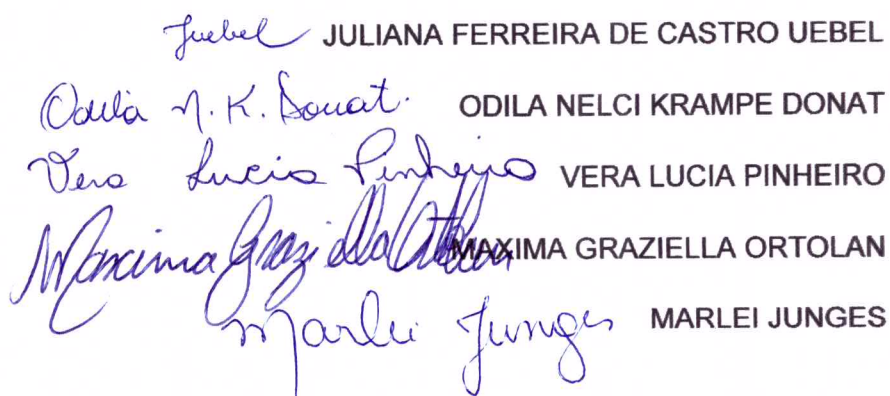 Juebel JULIANA FERREIRA DE CASTRO UEBEL
Odila N. K. Donat. ODILA NELCI KRAMPE DONAT
Vera Lucia Pinheiro VERA LUCIA PINHEIRO
Maxima Graziella Ortolan MAXIMA GRAZIELLA ORTOLAN
Marlei Junges MARLEI JUNGES